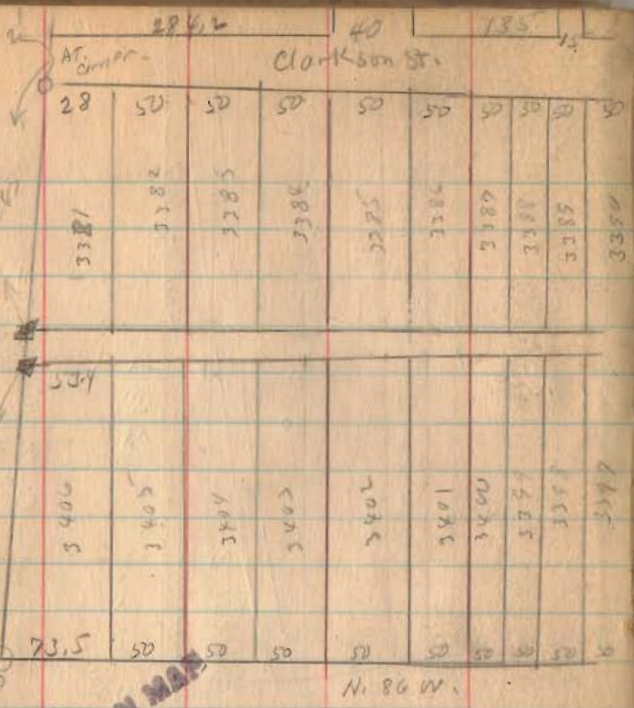 284.2 40 135 15
AT.
Clarkson St.
28 50 50 50 50 50 50 50 50 50
3381 3382 3383 3384 3385 3386 3387 3388 3389 3390
53.4
3406 3405 3404 3403 3402 3401 3400 3399 3398 3397
73.5 50 50 50 50 50 50 50 50 50
N. 86 W.